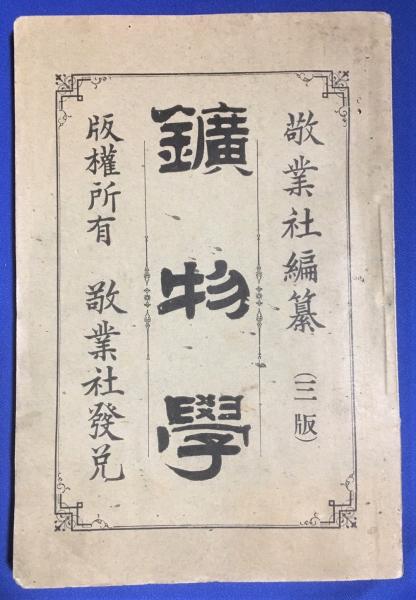 敬業社編纂（三版）
鑛物學
版權所有 敬業社發兌